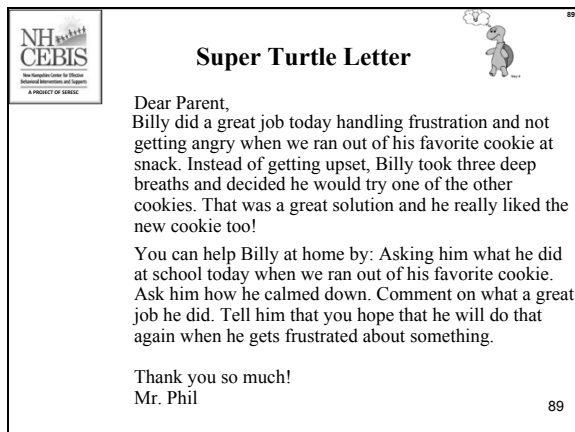 89
NH
CEBIS
New Hampshire Center for Effective
Behavioral Interventions and Supports
A PROJECT OF SERESC
Super Turtle Letter
Dear Parent,
Billy did a great job today handling frustration and not
getting angry when we ran out of his favorite cookie at
snack. Instead of getting upset, Billy took three deep
breaths and decided he would try one of the other
cookies. That was a great solution and he really liked the
new cookie too!
You can help Billy at home by: Asking him what he did
at school today when we ran out of his favorite cookie.
Ask him how he calmed down. Comment on what a great
job he did. Tell him that you hope that he will do that
again when he gets frustrated about something.
Thank you so much!
Mr. Phil
89